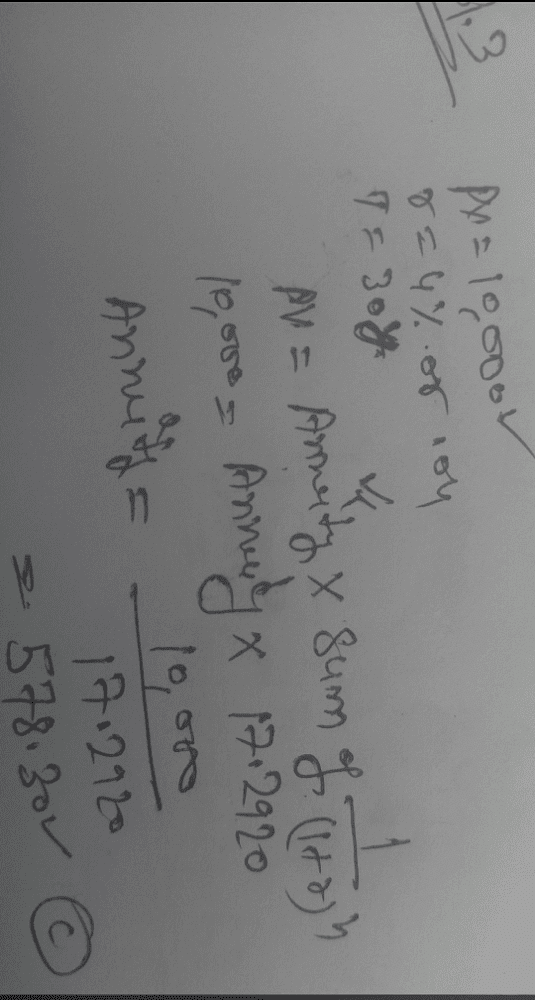 PV = 10,000
r = 4% or .04
T = 30y
PV = Annuity × Sum of 1/(1+r)^n
10,000 = Annuity × 17.2920
Annuity = 10,000/17.2920
= 578.30 ✓ (C)